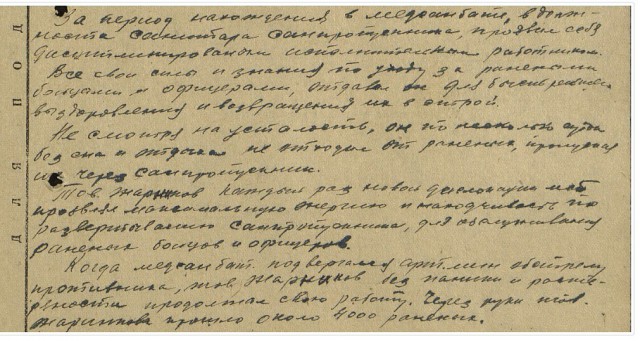 За период нахождения в медсанбате, в долж-
ности санитара санпропускника, проявил себя
дисциплинированным исполнительным работником.
Все свои силы и знания по уходу за ранеными
бойцами и офицерами, отдавал он для быстрейшего
выздоровления и возвращения их в строй.
Не смотря на усталость, он по несколько суток
без сна и отдыха не отходил от раненых, пропуская
их через санпропускник.
Тов. Жаринов каждый раз новой дислокации мсб
проявлял максимальную энергию и находчивость по
развертыванию санпропускника, для обслуживания
раненых бойцов и офицеров.
Когда медсанбат подвергался арт. мин. обстрелу
противника, тов. Жаринов без паники и расте-
рянности продолжал свою работу. Через руки тов.
Жаринова прошло около 4000 раненых.
ДЛЯ ПОД